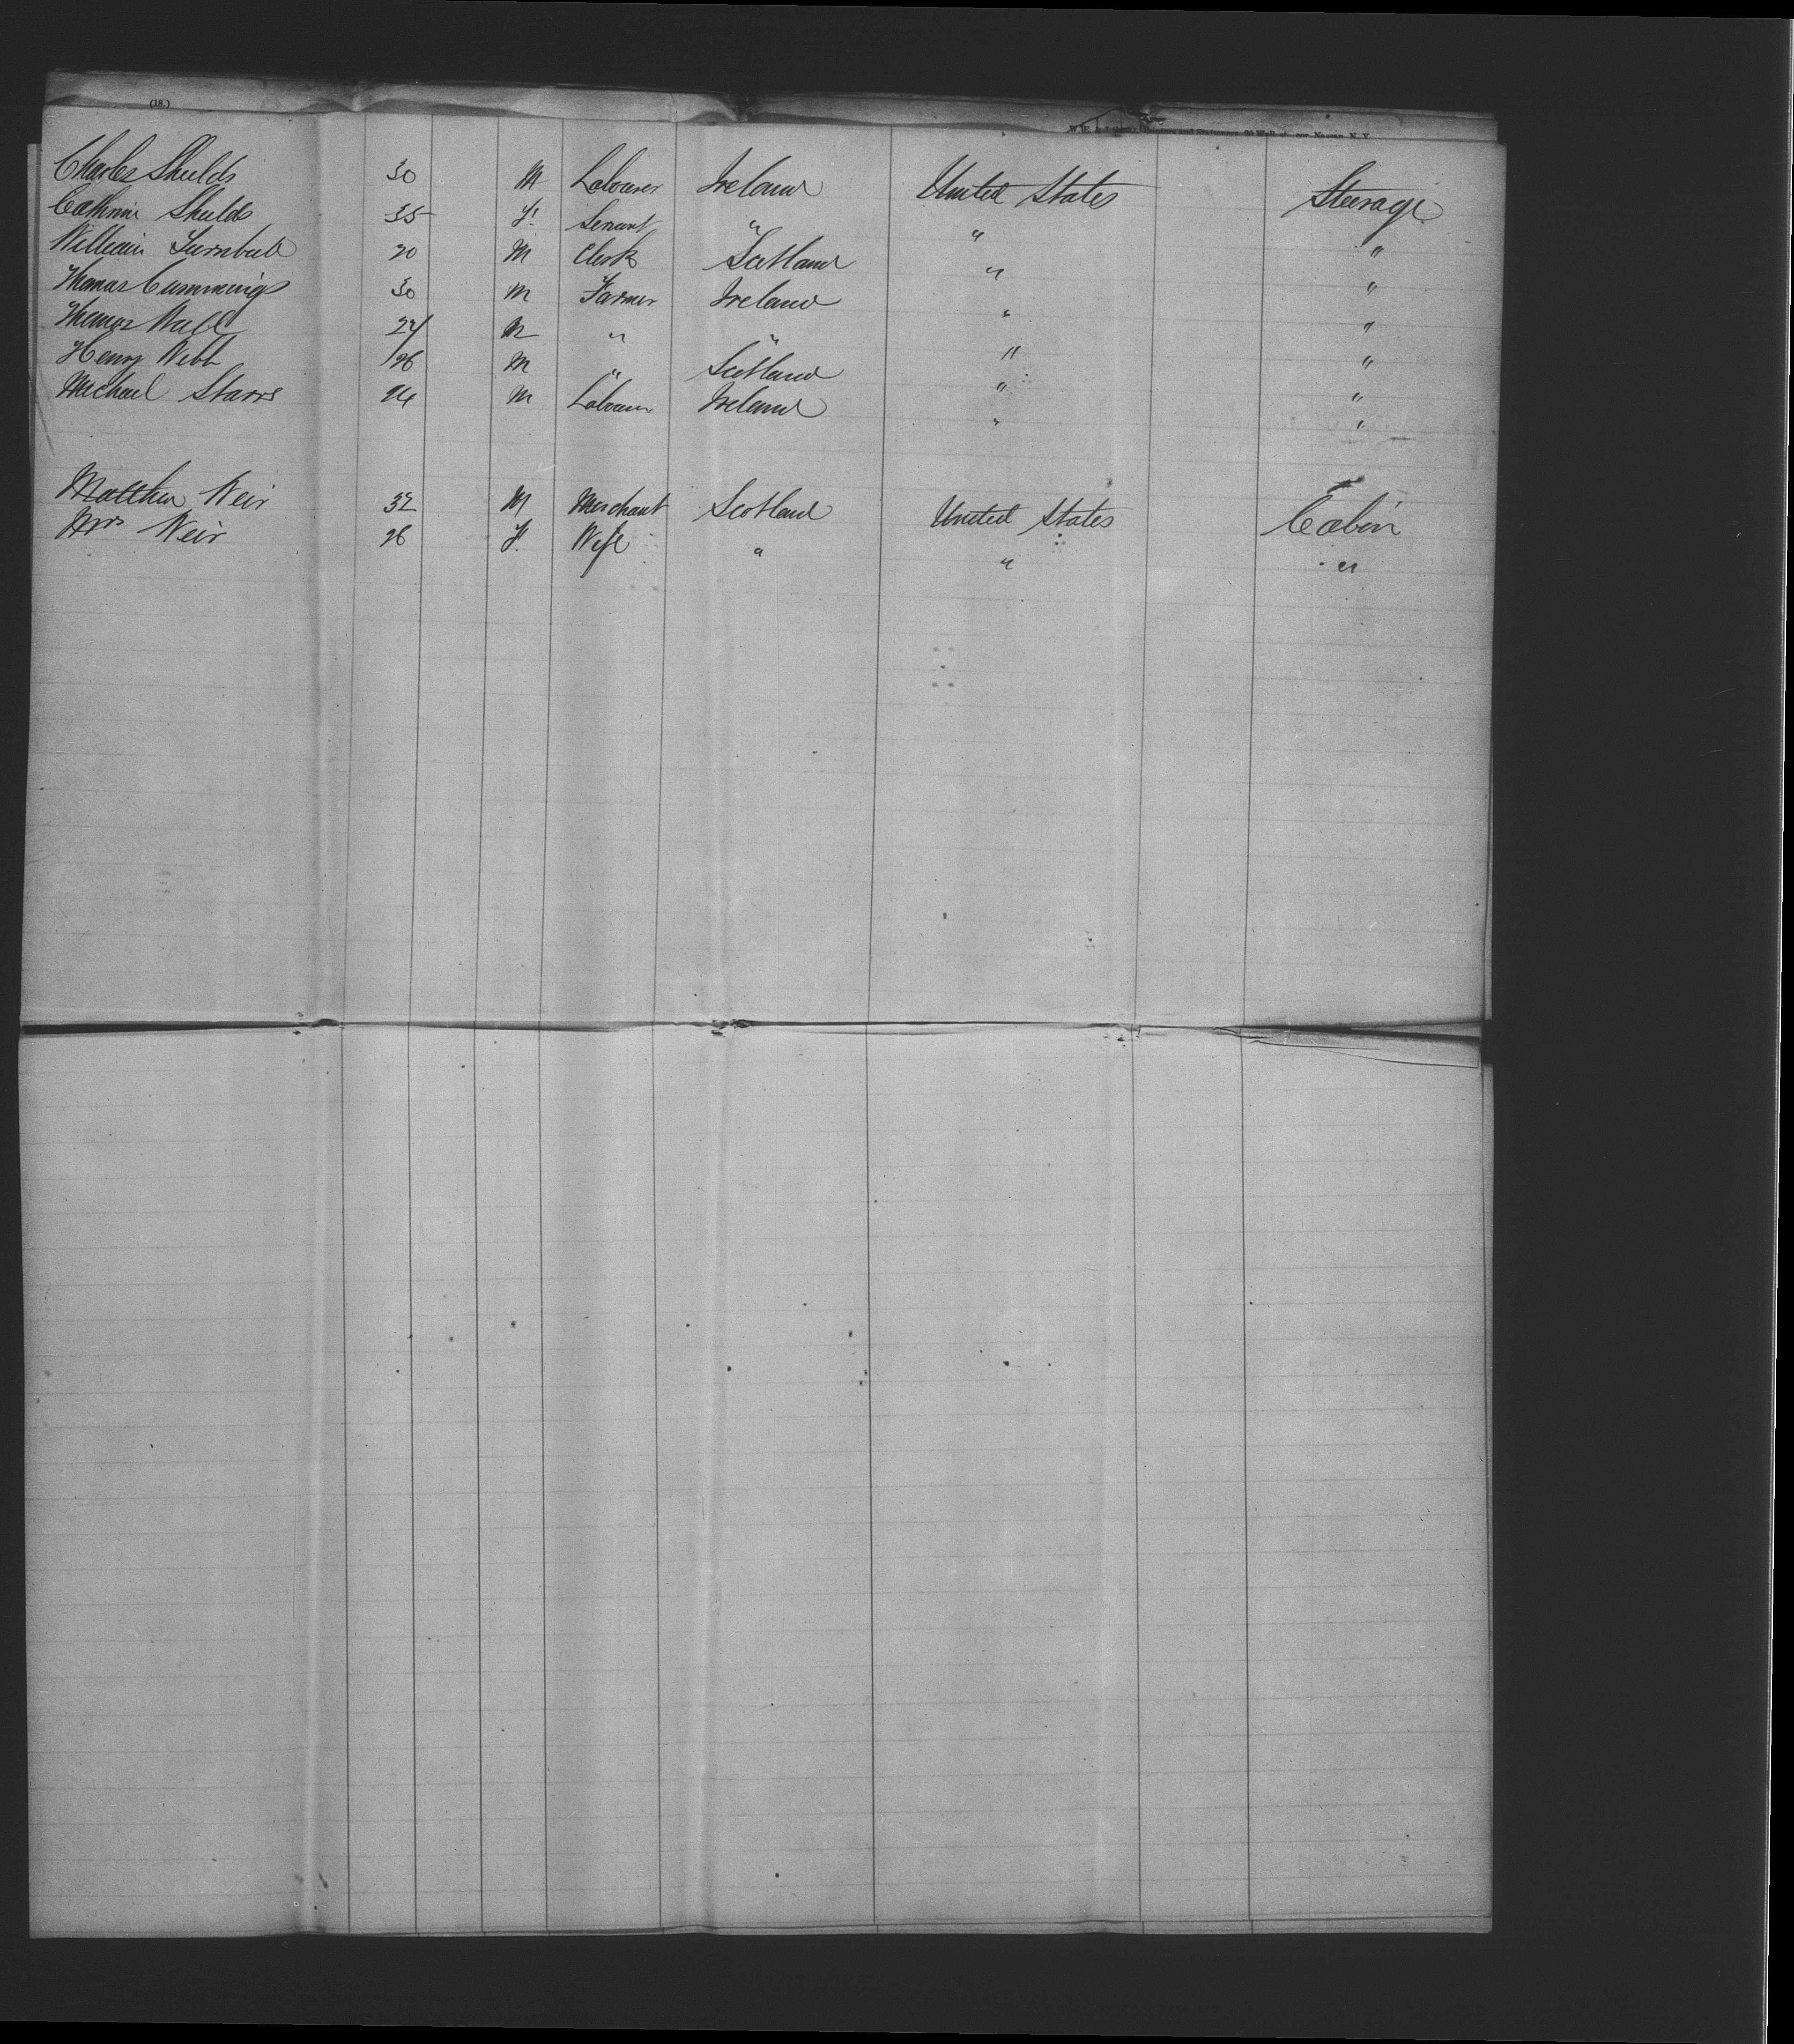 (18.)
Wall st. cor. Nassau, N. Y.
Charles Shields 30 M Labourer Ireland United States Steerage
Cathrine Shields 35 F. Servant " " "
William Turnbull 20 M Clerk Scotland " "
Thomas Cummings 30 M Farmer Ireland " "
Thomas Wall M " " " "
Henry Webb 26 M " Scotland " "
Michael Starrs 24 M Labourer Ireland " "
Matthew Weir 32 M Merchant Scotland United States Cabin
Mrs Weir 26 F. Wife " " "